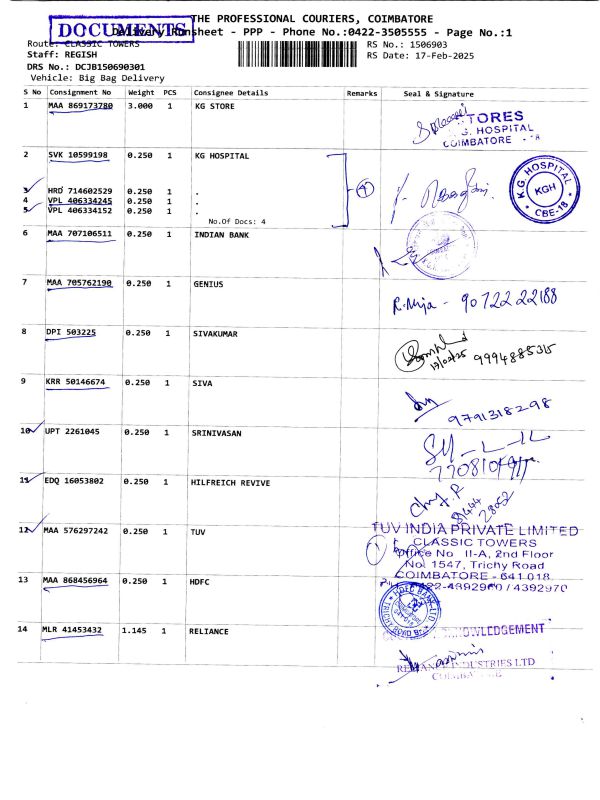 THE PROFESSIONAL COURIERS, COIMBATORE
DOCUMENTS
Delivery Runsheet - PPP - Phone No.:0422-3505555 - Page No.:1
Route: CLASSIC TOWERS RS No.: 1506903
Staff: REGISH RS Date: 17-Feb-2025
DRS No.: DCJB150690301
Vehicle: Big Bag Delivery
S No Consignment No Weight PCS Consignee Details Remarks Seal & Signature
1 MAA 869173780 3.000 1 KG STORE
TORES
G. HOSPITAL
COIMBATORE - 18
2 SVK 10599198 0.250 1 KG HOSPITAL
K.G. HOSPITAL
KGH
CBE-18
3 HRD 714602529 0.250 1 .
4 VPL 406334245 0.250 1 .
5 VPL 406334152 0.250 1 .
No.Of Docs: 4
4
6 MAA 707106511 0.250 1 INDIAN BANK
7 MAA 705762190 0.250 1 GENIUS
90722 22188
8 DPI 503225 0.250 1 SIVAKUMAR
17/02/25 9994885315
9 KRR 50146674 0.250 1 SIVA
9791318298
10 UPT 2261045 0.250 1 SRINIVASAN
11 EDQ 16053802 0.250 1 HILFREICH REVIVE
12 MAA 576297242 0.250 1 TUV
TUV INDIA PRIVATE LIMITED
CLASSIC TOWERS
Office No II-A, 2nd Floor
No. 1547, Trichy Road
COIMBATORE - 641 018
422-4392960 / 4392970
13 MAA 868456964 0.250 1 HDFC
HDFC BANK LTD
TRICHY ROAD Br.
14 MLR 41453432 1.145 1 RELIANCE
INDUSTRIES LTD